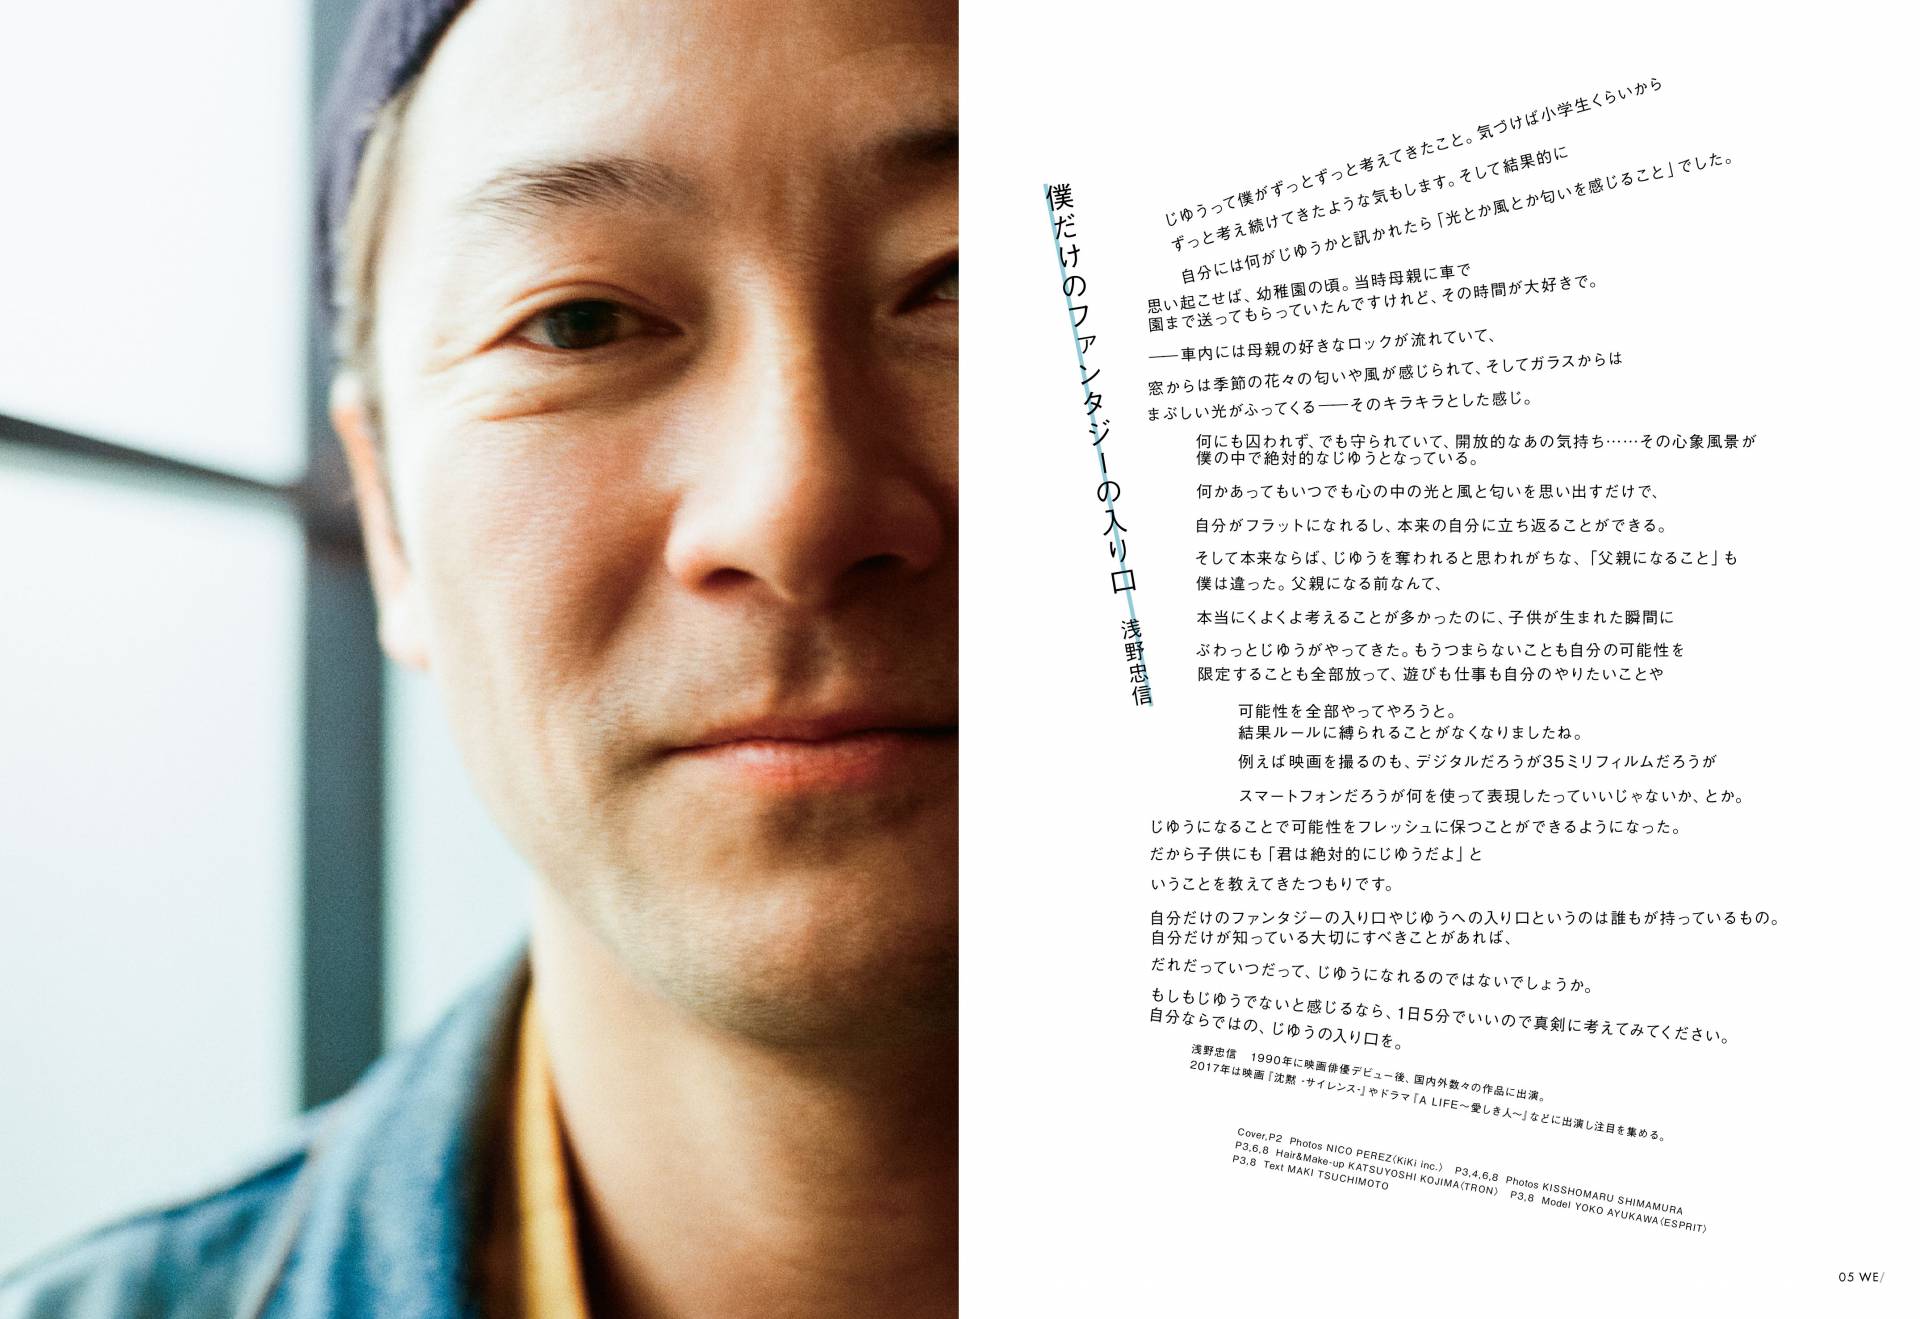 僕だけのファンタジーの入り口 浅野忠信
じゆうって僕がずっとずっと考えてきたこと。気づけば小学生くらいから
ずっと考え続けてきたような気もします。そして結果的に
自分には何がじゆうかと訊かれたら「光とか風とか匂いを感じること」でした。
思い起こせば、幼稚園の頃。当時母親に車で
園まで送ってもらっていたんですけれど、その時間が大好きで。
――車内には母親の好きなロックが流れていて、
窓からは季節の花々の匂いや風が感じられて、そしてガラスからは
まぶしい光がふってくる――そのキラキラとした感じ。
何にも囚われず、でも守られていて、開放的なあの気持ち……その心象風景が
僕の中で絶対的なじゆうとなっている。
何かあってもいつでも心の中の光と風と匂いを思い出すだけで、
自分がフラットになれるし、本来の自分に立ち返ることができる。
そして本来ならば、じゆうを奪われると思われがちな、「父親になること」も
僕は違った。父親になる前なんて、
本当にくよくよ考えることが多かったのに、子供が生まれた瞬間に
ぶわっとじゆうがやってきた。もうつまらないことも自分の可能性を
限定することも全部放って、遊びも仕事も自分のやりたいことや
可能性を全部やってやろうと。
結果ルールに縛られることがなくなりましたね。
例えば映画を撮るのも、デジタルだろうが35ミリフィルムだろうが
スマートフォンだろうが何を使って表現したっていいじゃないか、とか。
じゆうになることで可能性をフレッシュに保つことができるようになった。
だから子供にも「君は絶対的にじゆうだよ」と
いうことを教えてきたつもりです。
自分だけのファンタジーの入り口やじゆうへの入り口というのは誰もが持っているもの。
自分だけが知っている大切にすべきことがあれば、
だれだっていつだって、じゆうになれるのではないでしょうか。
もしもじゆうでないと感じるなら、1日5分でいいので真剣に考えてみてください。
自分ならではの、じゆうの入り口を。
浅野忠信　1990年に映画俳優デビュー後、国内外数々の作品に出演。
2017年は映画『沈黙 -サイレンス-』やドラマ『A LIFE〜愛しき人〜』などに出演し注目を集める。
Cover,P2 Photos NICO PEREZ〈KiKi inc.〉 P3,4,6,8 Photos KISSHOMARU SHIMAMURA
P3,6,8 Hair&Make-up KATSUYOSHI KOJIMA〈TRON〉 P3,8 Model YOKO AYUKAWA〈ESPRIT〉
P3,8 Text MAKI TSUCHIMOTO
05 WE/